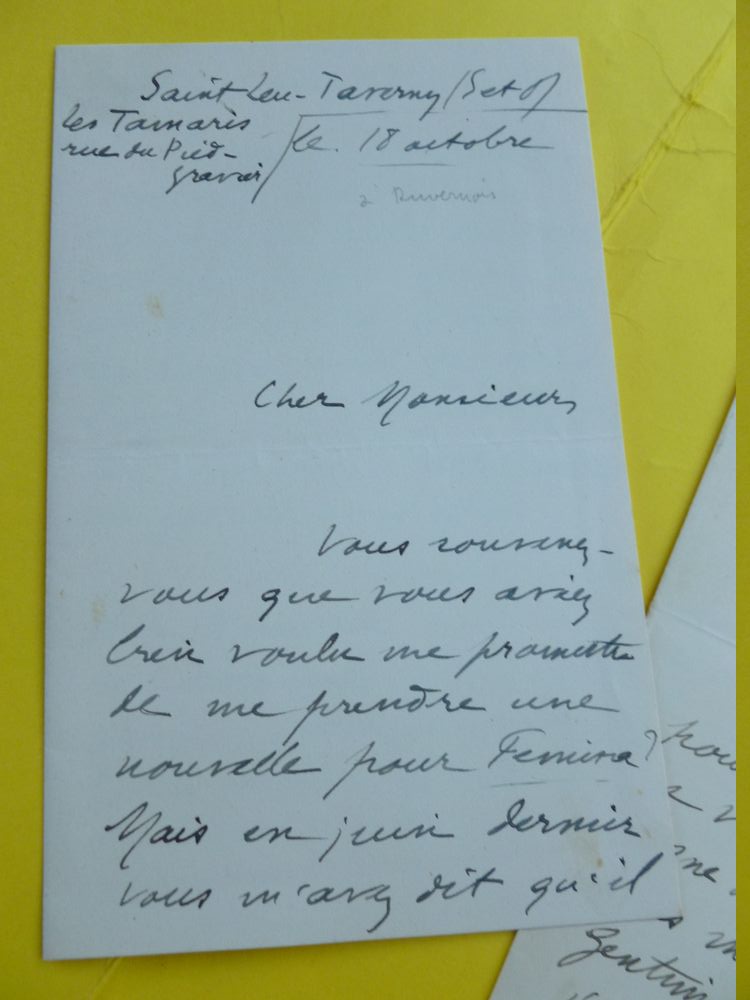 Saint-Leu-Taverny (S et O)
Les Tamaris
rue du Pied-
Gravier
le 18 octobre
à Duvernois
Cher Monsieur,
Vous souvenez-
vous que vous aviez
bien voulu me promettre
de me prendre une
nouvelle pour Femina ?
Mais en juin dernier
vous m'avez dit qu'il
pou
ne
Gentim